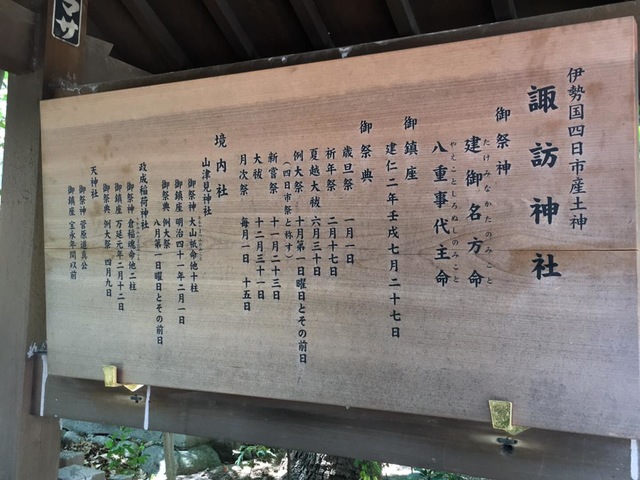 伊勢国四日市産土神
諏訪神社
御祭神
建御名方命
たけみなかたのみこと
八重事代主命
やえことしろぬしのみこと
御鎮座
建仁二年壬戌七月二十七日
御祭典
歳旦祭 一月一日
祈年祭 二月十七日
夏越大祓 六月三十日
例大祭 十月第一日曜日とその前日
(四日市祭と称す)
新嘗祭 十一月二十三日
大祓 十二月三十一日
月次祭 毎月一日 十五日
境内社
山津見神社
御祭神 大山祇命他十柱
御鎮座 明治四十一年二月一日
御祭典 例大祭
八月第一日曜日とその前日
政成稲荷神社
御祭神 倉稲魂命他二柱
御鎮座 万延元年二月十二日
御祭典 例大祭 四月九日
天神社
御祭神 菅原道真公
御鎮座 宝永年間以前
マサ